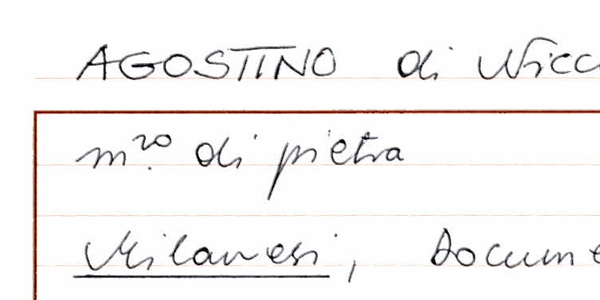 AGOSTINO di Nicc
m.ro di pietra
Milanesi, Docume